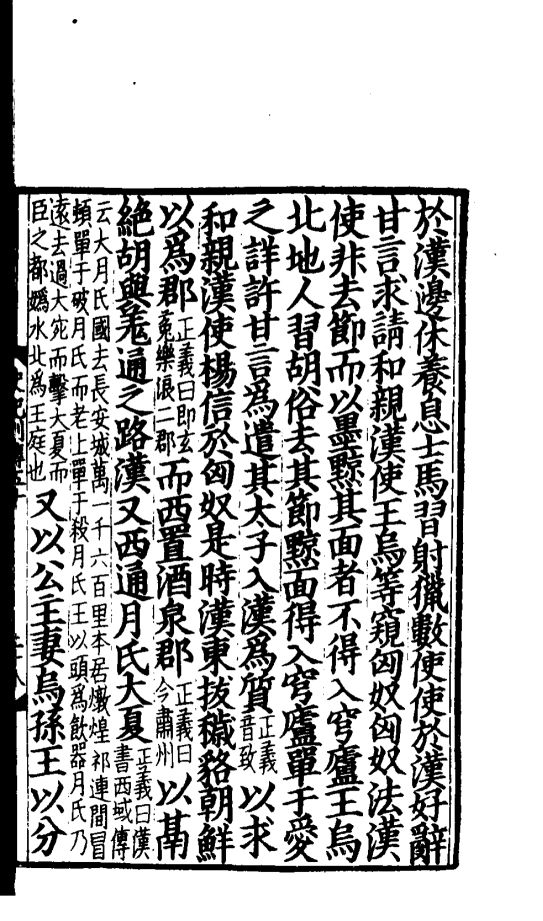 於漢邊休養息士馬習射獵數使使於漢好辭
甘言求請和親漢使王烏等窺匈奴匈奴法漢
使非去節而以墨黥其面者不得入穹廬王烏
北地人習胡俗去其節黥面得入穹廬單于愛
之詳許甘言為遣其太子入漢為質正義音致以求
和親漢使楊信於匈奴是時漢東拔穢貉朝鮮
以為郡正義曰即玄菟樂浪二郡而西置酒泉郡正義曰今肅州以鬲
絕胡與羌通之路漢又西通月氏大夏正義曰漢書西域傳
云大月氏國去長安城萬一千六百里本居燉煌祁連間冒
頓單于破月氏而老上單于殺月氏王以頭為飲器月氏乃
遠去過大宛而擊大夏而
臣之都媯水北為王庭也又以公主妻烏孫王以分